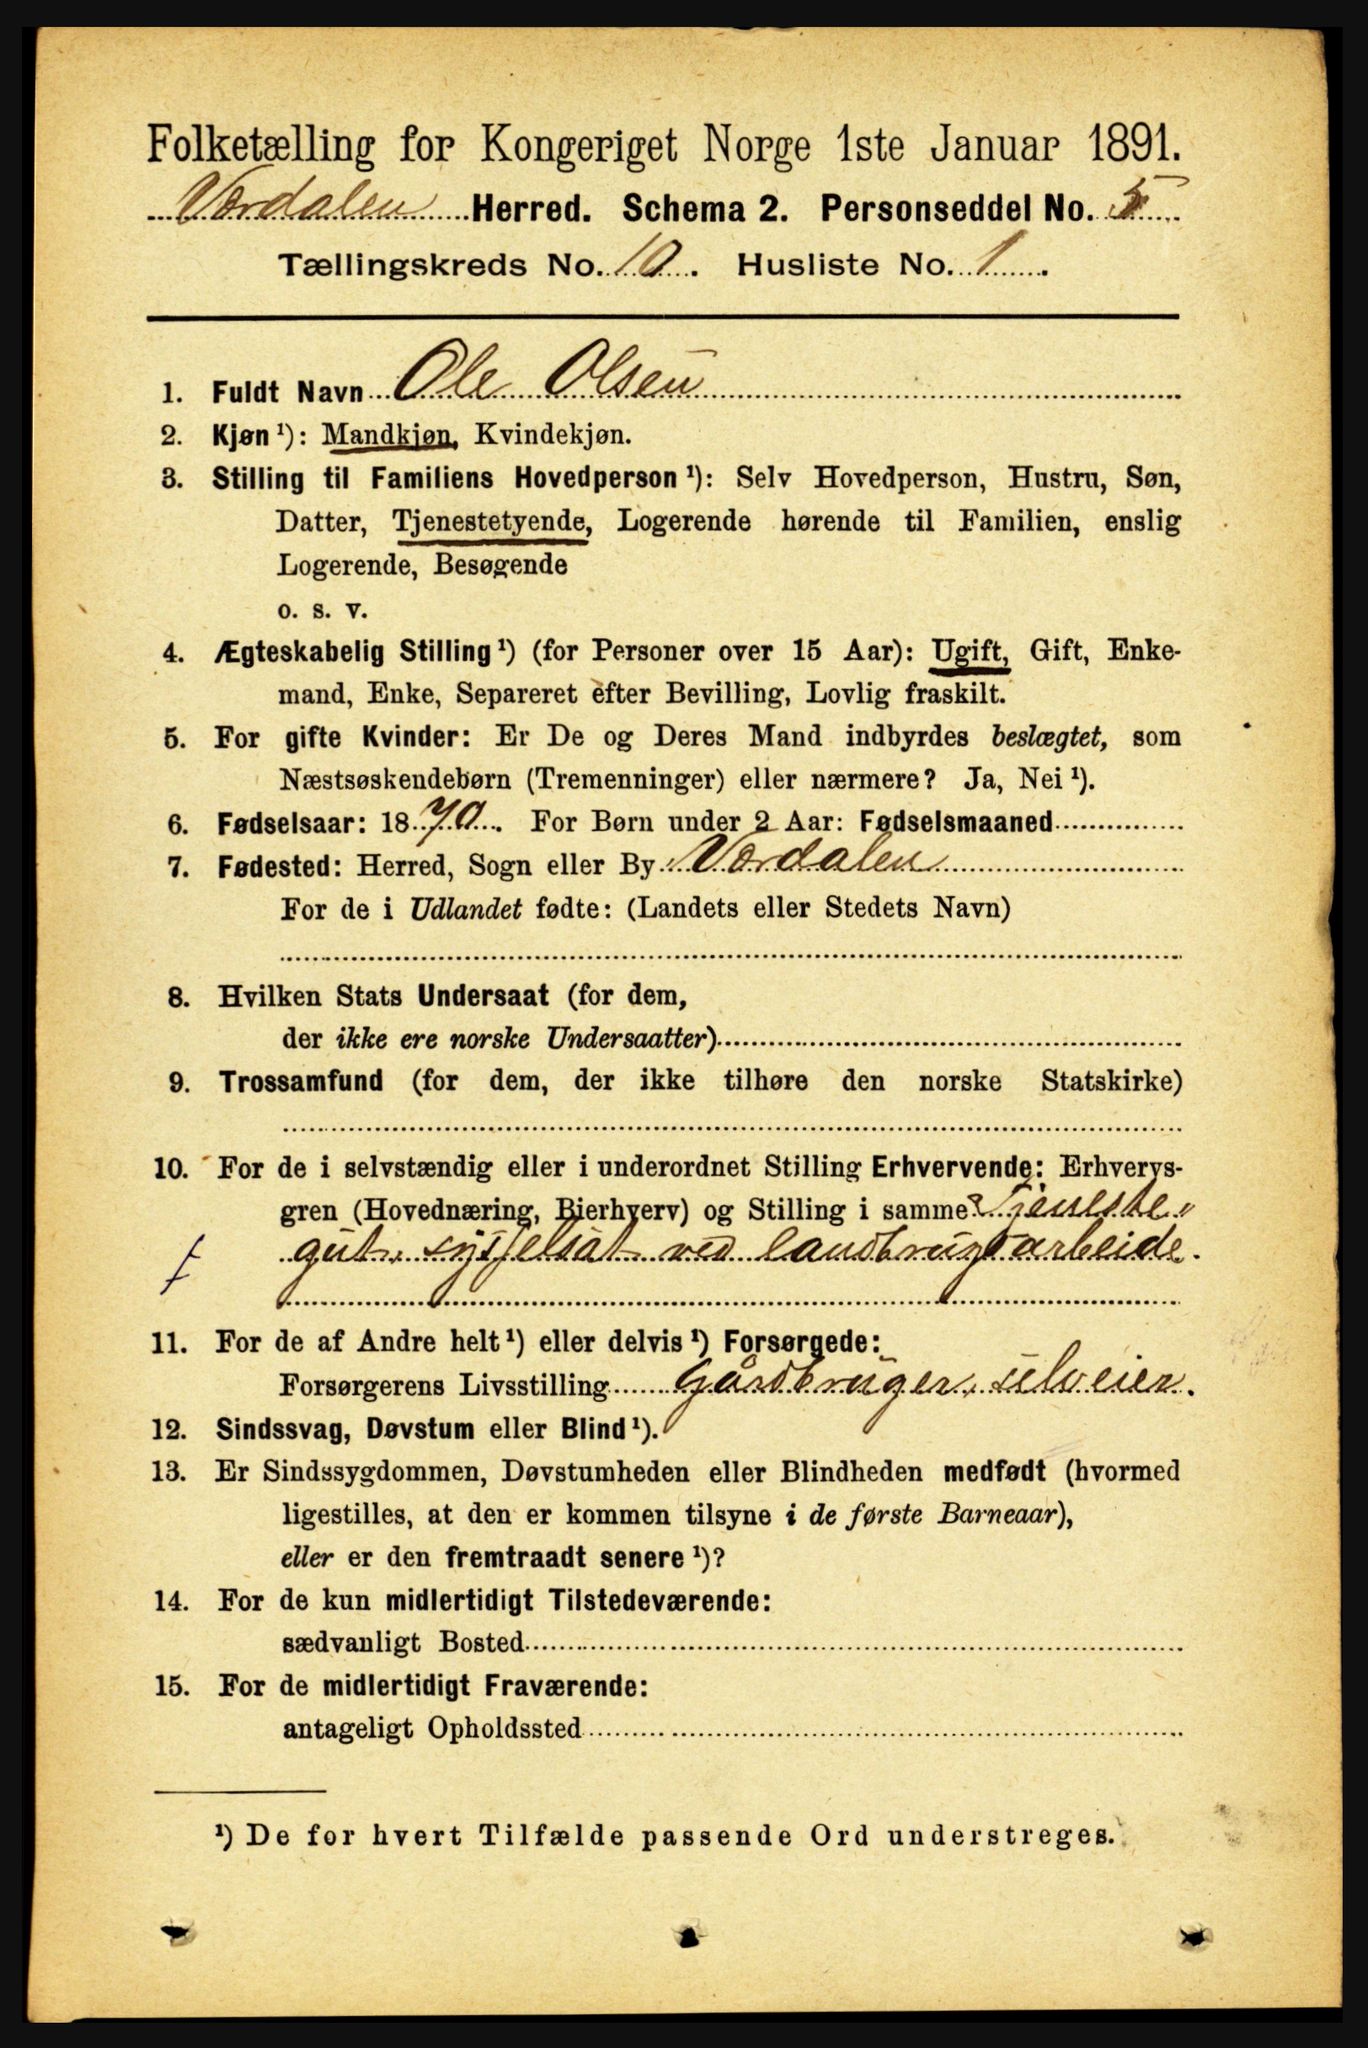 Folketælling for Kongeriget Norge 1ste Januar 1891.
Værdalen Herred. Schema 2. Personseddel No. 5
Tællingskreds No. 10. Husliste No. 1.
1. Fuldt Navn Ole Olsen
2. Kjøn ¹): Mandkjøn, Kvindekjøn.
3. Stilling til Familiens Hovedperson ¹): Selv Hovedperson, Hustru, Søn,
Datter, Tjenestetyende, Logerende hørende til Familien, enslig
Logerende, Besøgende
o. s. v.
4. Ægteskabelig Stilling ¹) (for Personer over 15 Aar): Ugift, Gift, Enke-
mand, Enke, Separeret efter Bevilling, Lovlig fraskilt.
5. For gifte Kvinder: Er De og Deres Mand indbyrdes beslægtet, som
Næstsøskendebørn (Tremenninger) eller nærmere? Ja, Nei ¹).
6. Fødselsaar: 1870. For Børn under 2 Aar: Fødselsmaaned
7. Fødested: Herred, Sogn eller By Værdalen
For de i Udlandet fødte: (Landets eller Stedets Navn)
8. Hvilken Stats Undersaat (for dem,
der ikke ere norske Undersaatter)
9. Trossamfund (for dem, der ikke tilhøre den norske Statskirke)
10. For de i selvstændig eller i underordnet Stilling Erhvervende: Erhvervs-
gren (Hovednæring, Bierhverv) og Stilling i samme? Tjeneste„
gut, sysselsat ved landbrugsarbeide.
11. For de af Andre helt ¹) eller delvis ¹) Forsørgede:
Forsørgerens Livsstilling Gårdbruger, selveier.
12. Sindssvag, Døvstum eller Blind ¹).
13. Er Sindssygdommen, Døvstumheden eller Blindheden medfødt (hvormed
ligestilles, at den er kommen tilsyne i de første Barneaar),
eller er den fremtraadt senere ¹)?
14. For de kun midlertidigt Tilstedeværende:
sædvanligt Bosted
15. For de midlertidigt Fraværende:
antageligt Opholdssted
¹) De for hvert Tilfælde passende Ord understreges.